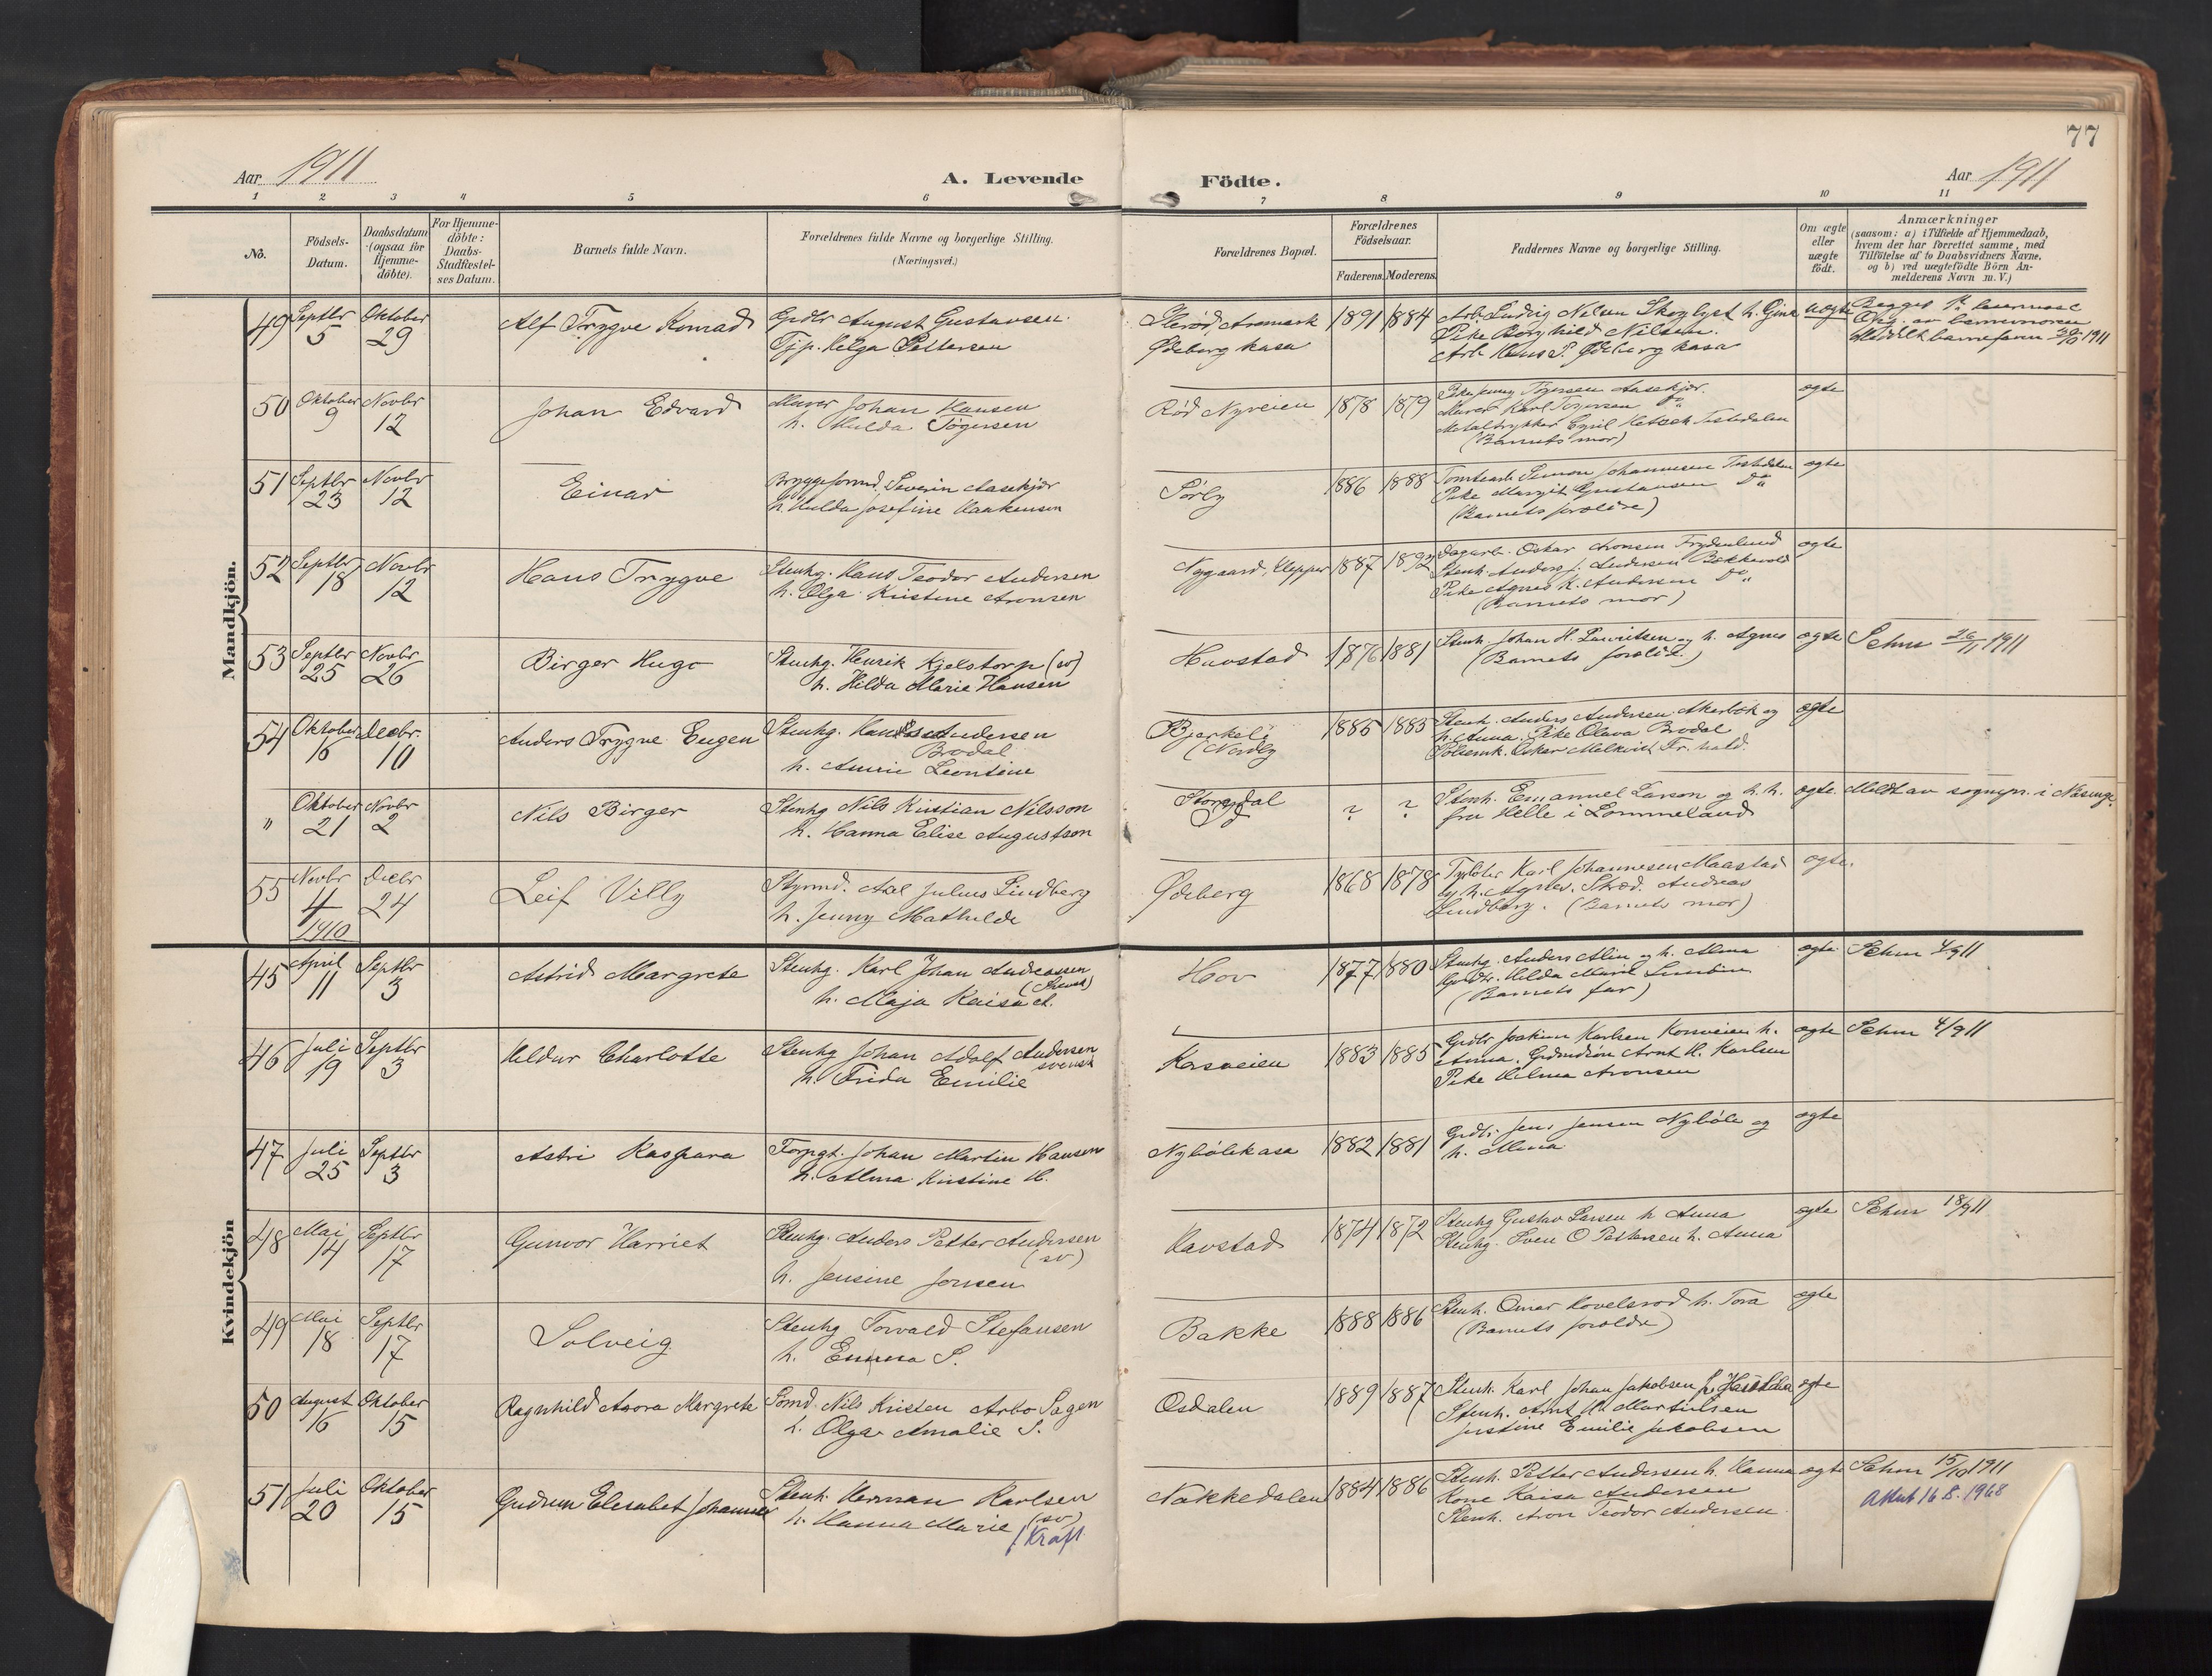 77
Aar 1911
A. Levende
Födte.
Aar 1911
1 2 3 4 5 6 7 8 9 10 11
No.
Födsels-Datum.
Daabsdatum (ogsaa for Hjemmedöbte).
For Hjemmedöbte: Daabs-Stadfæstelses Datum.
Barnets fulde Navn.
Forældrenes fulde Navne og borgerlige Stilling.
(Næringsvei.)
Forældrenes Bopæl.
Forældrenes Födselsaar.
Faderens. Moderens.
Faddernes Navne og borgerlige Stilling.
Om ægte eller uægte födt.
Anmærkninger
(saasom: a) i Tilfælde af Hjemmedaab, hvem der har forrettet samme, med Tilföielse af to Daabsvidners Navne, og b) ved uægtefödte Börn Anmelderens Navn m. V.)
Mandkjön.
49 Septbr 5 Oktober 29 Alf Trygve Konrad
Grdbr August Gustavsen
Tjp. Helga Pettersen
Aremark
Ødeberg kasa
1891 1884
Arb. Ludvig Nelsen Skoglyst h. Gina
Pike Borghild Nilsen.
Arb. Hans P. Ødeberg kasa
uægte
50 Oktober 9 Novbr 12 Johan Edvard
Murer Johan Hansen
h. Hulda Tøgersen
Rød Nyveien
1878 1879
Pike Jenny Tøgersen Aasekjær.
Murer Karl Tøgersen Do
(Barnets mor)
ægte
51 Septbr 23 Novbr 12 Einar
Bryggeformd. Severin Aasekjær
h. Hulda Josefine Haakensen
Sørby
1886 1888
Tomtearb. Simon Johannesen Tistedalen
Pike Margit Gustavsen Do
(Barnets forældre)
ægte
52 Septbr 18 Novbr 12 Hans Trygve
Stenhg. Hans Teodor Andersen
h. Olga Kristine Aronsen
Nygaard, Ulepper
1887 1892
Dagarb. Oskar Aronsen Frydenlund
Stenh. Anders J. Andersen Bakkevold
Pike Agnes K. Andersen Do
(Barnets mor)
ægte
53 Septbr 25 Novbr 26 Birger Hugo
Stenhg. Henrik Kjelstorp (sv)
h. Hilda Marie Hansen
Havstad
1876 1881
Stenh. Johan H. Lauritsen og h. Agnes
(Barnets forældre)
ægte
Sehm 26/11 1911
54 Oktober 16 Decbr. 10 Anders Trygve Eugen
Stenhg. Andersen
Brodal
h. Leontine
Bjerkeli
(Nordby
1885 1883
Stenh. Anders Andersen Akerbæk og
h. Anna. Pike Olava Brodal
ægte
" Oktober 21 Novbr 2 Nils Birger
Stenhg Nils Kristian Nilsson
h. Hanna Elise Augustson
? ?
Stenh. Emanuel Larson og h. h.
fra Helle i Lommeland
ægte.
Meldt av sognepr. i Näsinge.
55 Novbr 4 1910 Decbr 24 Leif Villy
Styrmd. Axel Julius Lindberg
h. Jenny Mathilde
Ødeberg
1868 1878
Karl Johannesen Maastad
og h. Agnes. Andreas
Lindberg. (Barnets mor)
ægte.
Kvindekjön
45 April 11 Septbr 3 Astrid Margrete
Stenhg. Karl Johan Andreassen
(svensk)
h. Maja Kaisa A.
Hov
1877 1880
Stenhg. Anders Alin og h. Alma
Hilda Marie Lundin
(Barnets far)
ægte
Sehm 4/9 11
46 Juli 19 Septbr 3 Hildur Charlotte
Stenhg Johan Adolf Andersen
svensk
h. Frida Emilie
Korsveien
1883 1885
Grdbr Joakim Karlsen Korsveien h.
Anna. Grdmdsøn Arnt H. Karlsen
Pike Hilma Aronsen
ægte
Sehm 4/9 11
47 Juli 25 Septbr 3 Astri Kaspara
Forpgt. Johan Martin Hansen
h. Alma Kristine H.
Nybølekasa
1882 1881
Grdbr. Jens Jensen Nybøle og
h. Mina
ægte
48 Mai 14 Septbr 17 Gunvor Harriet
Stenhg. Anders Petter Andersen
(sv)
h. Jensine Jonsen
Havstad
1874 1872
Stenhg Gustav Larsen h Anna
Stenhg. Sven O Pettersen h. Anna
ægte
Sehm 18/9 11
49 Mai 18 Septbr 17 Solveig
Stenhg Torvald Stefansen
h. Emma S.
Bakke
1888 1886
Stenh. Omar Hovelsrød h. Tora
(Barnets forældre)
ægte
50 August 16 Oktober 15 Ragnhild Aasora Margrete
Sømd. Nils Kristen Arbo Sagen
h. Olga Amalie S.
Osdalen
1889 1887
Stenh. Karl Johan Jakobsen
Stenh. Arnt M. Martinsen
Justine Emilie Jakobsen
ægte
51 Juli 20 Oktober 15 Gudrun Elisabet Johanne
Stenh. Herman Karlsen
(sv)
h. Hanna Marie
f. Kraft
Nokkedalen
1884 1886
Stenh. Petter Andersen h. Hanna
Kone Kaisa Andersen
Stenh. Aron Teodor Andersen
ægte
Sehm 15/10 1911
Attest 16.8.1968